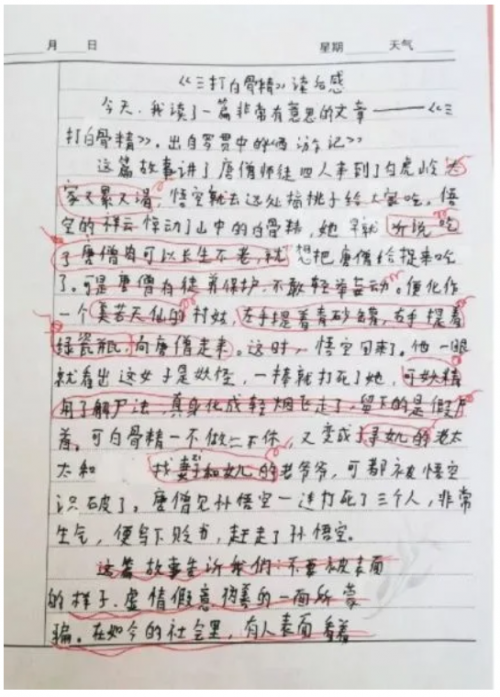 月 日 星期 天气
《三打白骨精》读后感
今天,我读了一篇非常有意思的文章——《三
打白骨精》。出自罗贯中的《西游记》
这篇故事讲了唐僧师徒四人来到了白虎岭大
家又累又渴,悟空就去远处摘桃子给大家吃。悟
空的祥云惊动了山中的白骨精,她早就听说吃
了唐僧肉可以长生不老,就想把唐僧给捉来吃
了。可是唐僧有徒弟保护,不敢轻举妄动。便化作
一个美若天仙的村姑,左手提着青砂罐,右手提着
绿瓷瓶,向唐僧走来。这时,悟空回来了。他一眼
就看出这女子是妖怪,一棒就打死了她,可妖精
用了解尸法,真身化成轻烟飞走了,留下的是假尸
首。可白骨精一不做二不休,又变成寻女儿的老太
太和 找妻子和女儿的老爷爷,可都被悟空
识破了。唐僧见孙悟空一连打死了三个人,非常
生气,便写下贬书,赶走了孙悟空。
这篇故事告诉我们:不要被表面
的样子,虚情假意伪善的一面所蒙
骗。在如今的社会里,有人表面看着